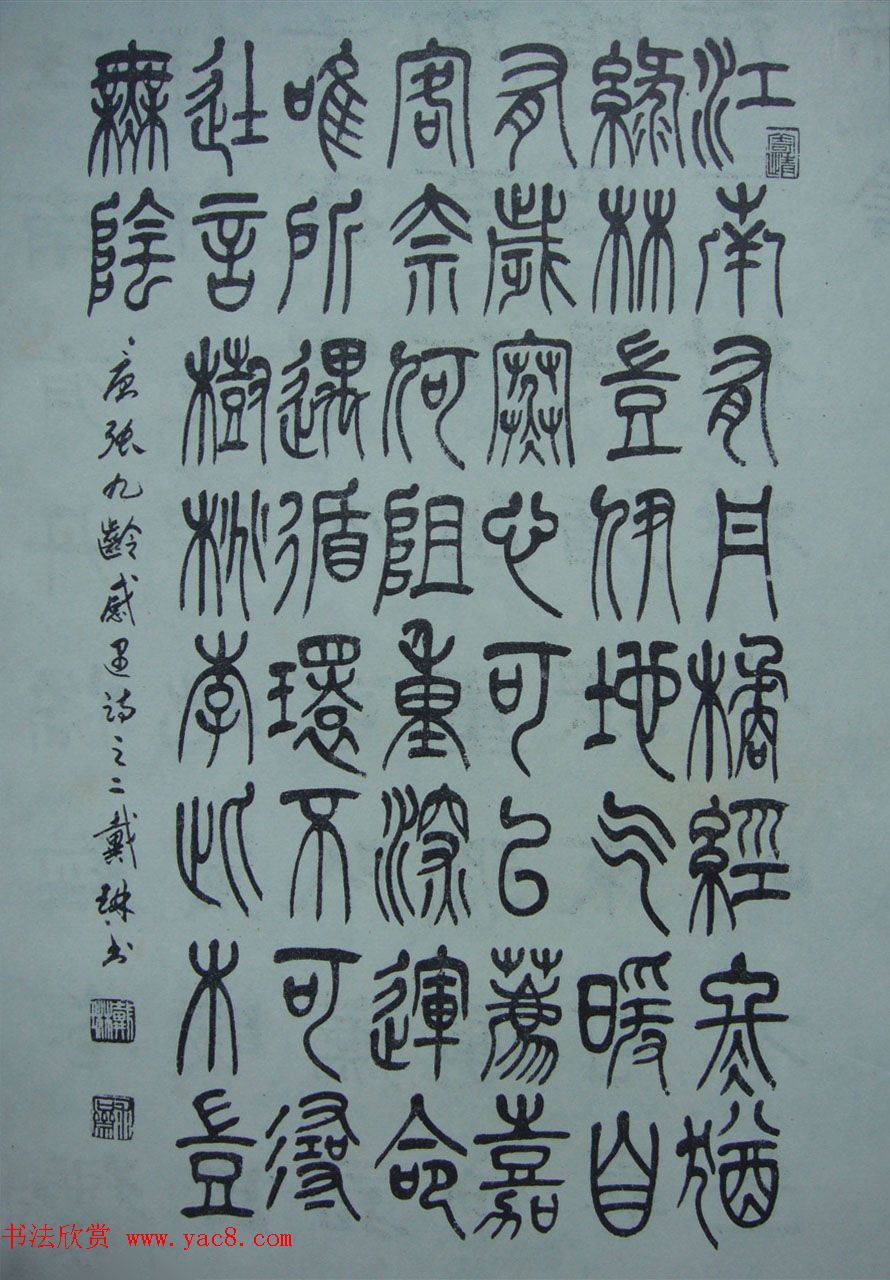 江南有丹橘經冬猶
綠林豈伊地气暖自
有歲寒心可以薦嘉
客奈何阻重深運命
唯所遇循環不可尋
徒言樹桃李此木豈
無陰
唐張九齡感遇詩之二戴琳书
戴琳
书法欣赏 www.yac8.com